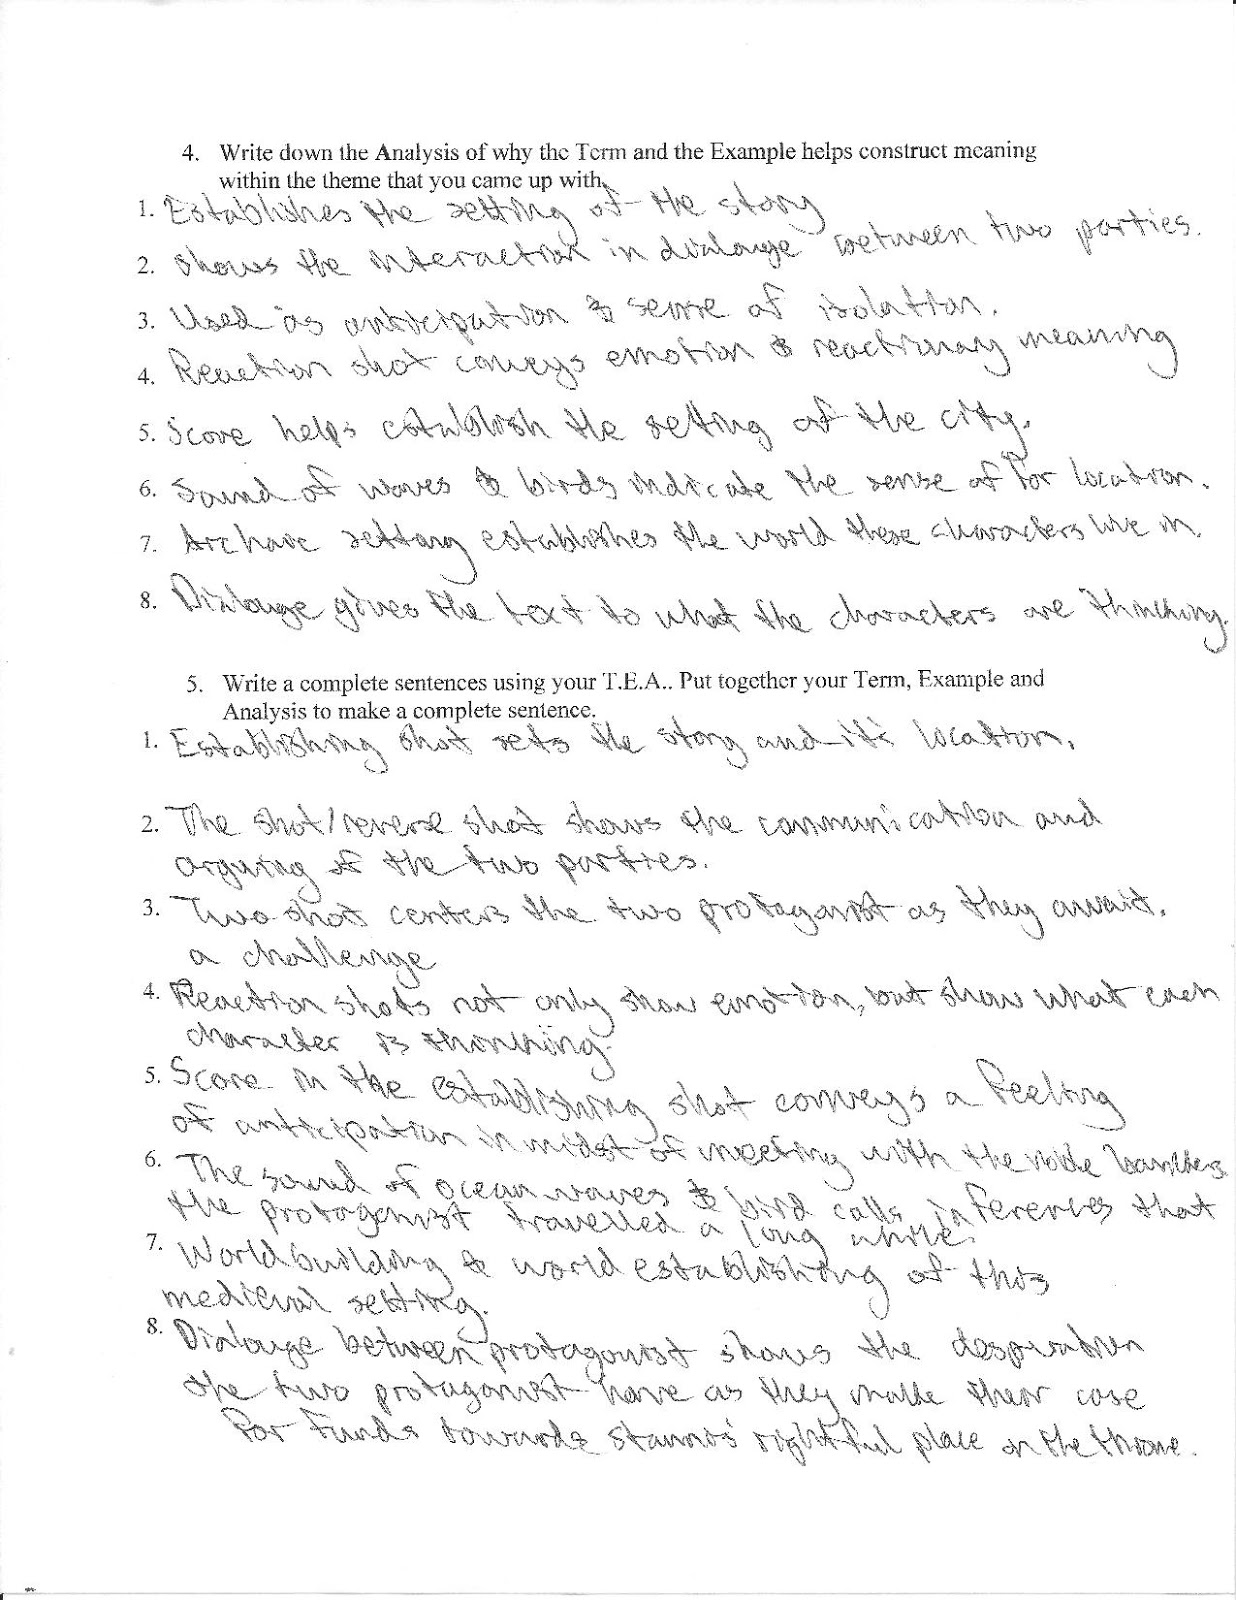 4. Write down the Analysis of why the Term and the Example helps construct meaning
within the theme that you came up with.
1. Establishes the setting of the story
2. Shows the interaction in dialouge between two parties.
3. Used as anticipation & sense of isolation.
4. Reaction shot conveys emotion & reactionary meaning
5. Score helps establish the setting of the city.
6. Sound of waves & birds indicate the sense of for location.
7. Archaic setting establishes the world these characters live in.
8. Dialouge gives the text to what the characters are thinking.
5. Write a complete sentences using your T.E.A.. Put together your Term, Example and
Analysis to make a complete sentence.
1. Establishing shot sets the story and it's location.
2. The shot/reverse shot shows the communication and
arguing of the two parties.
3. Two shot centers the two protagonist as they await.
a challenge
4. Reaction shots not only show emotion, but show what each
character is thinking.
5. Score in the establishing shot conveys a feeling
of anticipation in midst of meeting with the noble bankers
6. The sound of ocean waves & bird calls inferences that
the protagonist travelled a long while.
7. World building & world establishing of this
medieval setting.
8. Dialouge between protagonist shows the desperation
the two protagonist have as they make their case
for funds towards Stannis' rightful place on the throne.